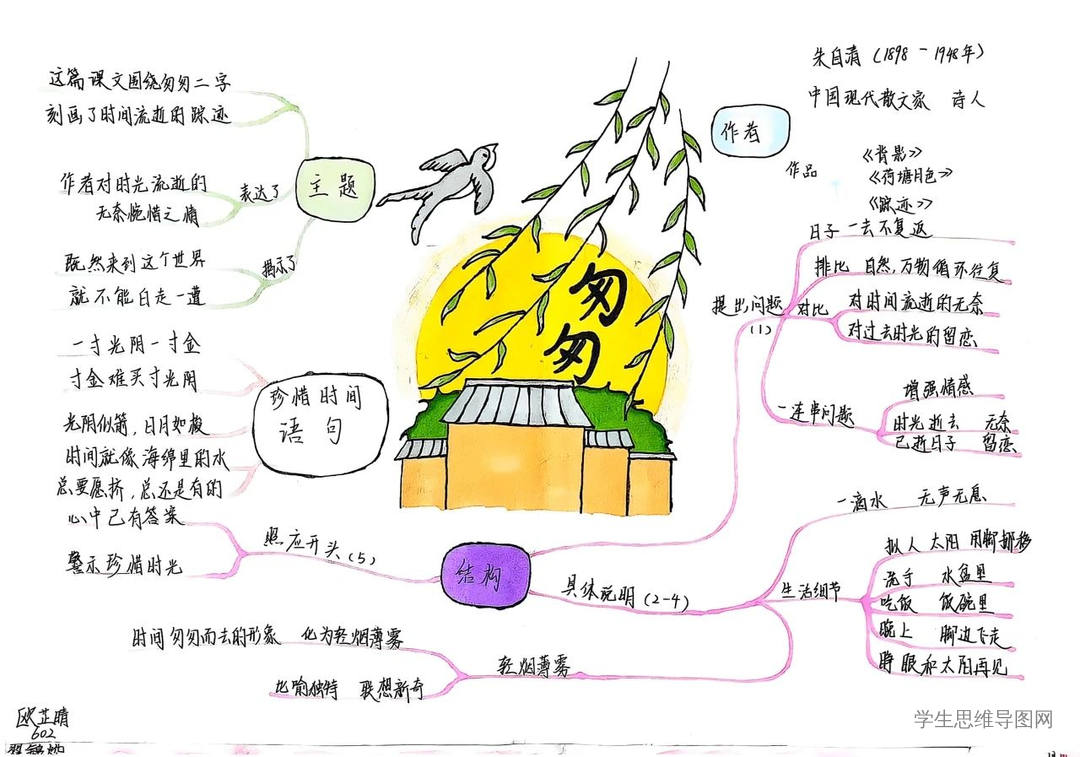 匆匆
主题
这篇课文围绕匆匆二字
刻画了时间流逝的踪迹
表达了
作者对时光流逝的
无奈惋惜之情
揭示了
既然来到这个世界
就不能白走一遭
珍惜时间
语句
一寸光阴一寸金
寸金难买寸光阴
光阴似箭,日月如梭
时间就像海绵里的水
总要愿挤,总还是有的
作者
朱自清(1898-1948年)
中国现代散文家 诗人
作品
《背影》
《荷塘月色》
《踪迹》
结构
提出问题
(1)
日子一去不复返
排比 自然,万物循环往复
对比
对时间流逝的无奈
对过去时光的留恋
一连串问题
增强情感
时光逝去 无奈
已逝日子 留恋
具体说明(2-4)
一滴水 无声无息
生活细节
拟人 太阳 用脚挪移
洗手 水盆里
吃饭 饭碗里
晚上 脚边飞走
睁眼和太阳再见
轻烟薄雾
时间匆匆而去的形象 化为轻烟薄雾
比喻独特 联想新奇
照应开头(5)
心中已有答案
警示珍惜时光
欧芷晴
602
学生思维导图网